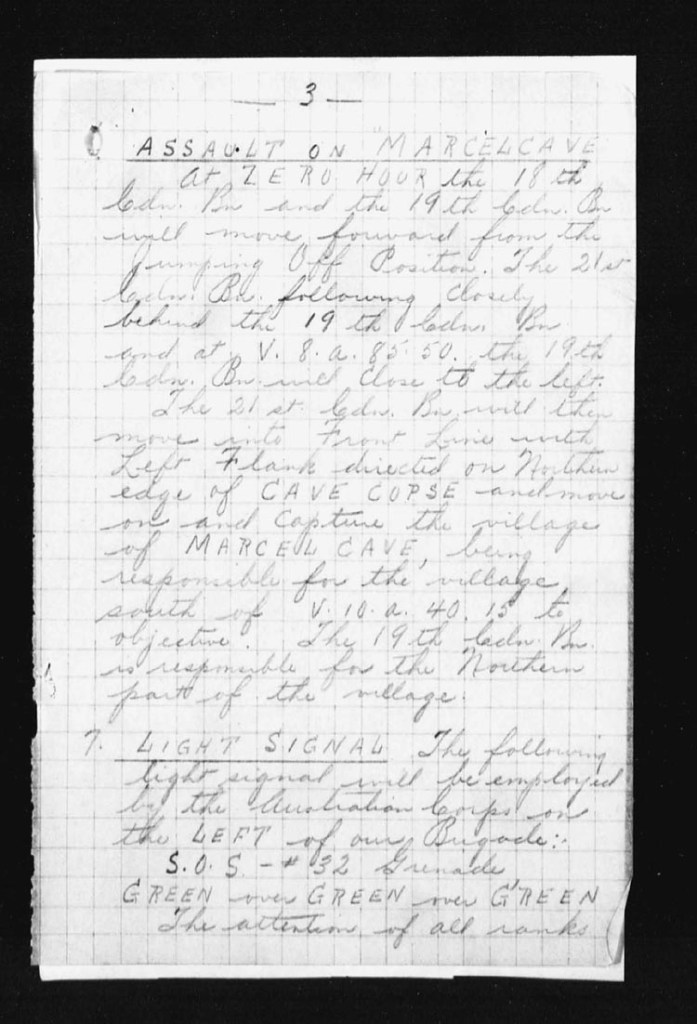 — 3 —
ASSAULT ON MARCELCAVE
At ZERO HOUR the 18th
Cdn. Bn and the 19th Cdn. Bn
will move forward from the
Jumping Off Position. The 21st
Cdn. Bn. following closely
behind the 19th Cdn. Bn
and at V. 8. a. 85. 50. the 19th
Cdn. Bn. will close to the left.
The 21st. Cdn. Bn. will then
move into Front Line with
Left Flank directed on Northern
edge of CAVE COPSE and move
on and capture the village
of MARCELCAVE, being
responsible for the village
south of V. 10. a. 40. 15 to
objective. The 19th Cdn. Bn.
is responsible for the Northern
part of the village.
7. LIGHT SIGNAL The following
light signal will be employed
by the Australian Corps on
the LEFT of our Brigade:-
S.O.S - # 32 Grenade
GREEN over GREEN over GREEN
The attention of all ranks